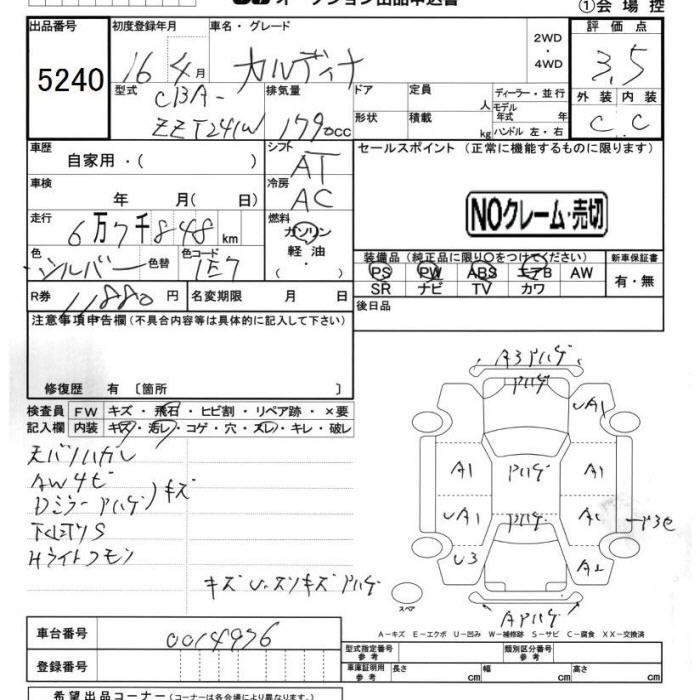 オークション出品申込書
①会場控
出品番号
5240
初度登録年月
16年4月
車名・グレード
カルディナ
2WD
・
4WD
評価点
3.5
型式
CBA-
ZZT241W
排気量
1790cc
ドア
形状
定員
人
積載
kg
ディーラー・並行
モデル
年式 年
ハンドル 左・右
外装 内装
C C
車歴
自家用・( )
シフト
AT
セールスポイント (正常に機能するものに限ります)
車検
年 月( 日)
冷房
AC
NOクレーム・売切
走行
6万7千848km
燃料
ガソリン
軽油
・( )
色
シルバー
色替
色コード
1E7
装備品 (純正品に限り○をつけてください)
PS PW ABS エアB AW
SR ナビ TV カワ
新車保証書
有・無
R券
11880円
名変期限 月 日
後日品
注意事項申告欄(不具合内容等は具体的に記入して下さい)
修復歴 有 〔箇所 〕
検査員 FW キズ・飛石・ヒビ割・リペア跡・×要
記入欄 内装 キズ・汚レ・コゲ・穴・スレ・キレ・破レ
天バリハガレ
AWキズ
Dミラー Pハゲ キズ
下回りS
Hライトクモリ
キズ Pハゲ
A3 Pハゲ
Pハゲ
UA1
A1
Pハゲ
A1
UA1
Pハゲ
U3
A2
A Pハゲ
スペア
A-キズ E-エクボ U-凹み W-補修跡 S-サビ C-腐食 XX-交換済
車台番号
0014976
登録番号
型式指定番号
参考
類別区分番号
参考
車庫証明用
参考
長さ cm
幅 cm
高さ cm
希望出品コーナー(コーナーは各会場により異なります。)